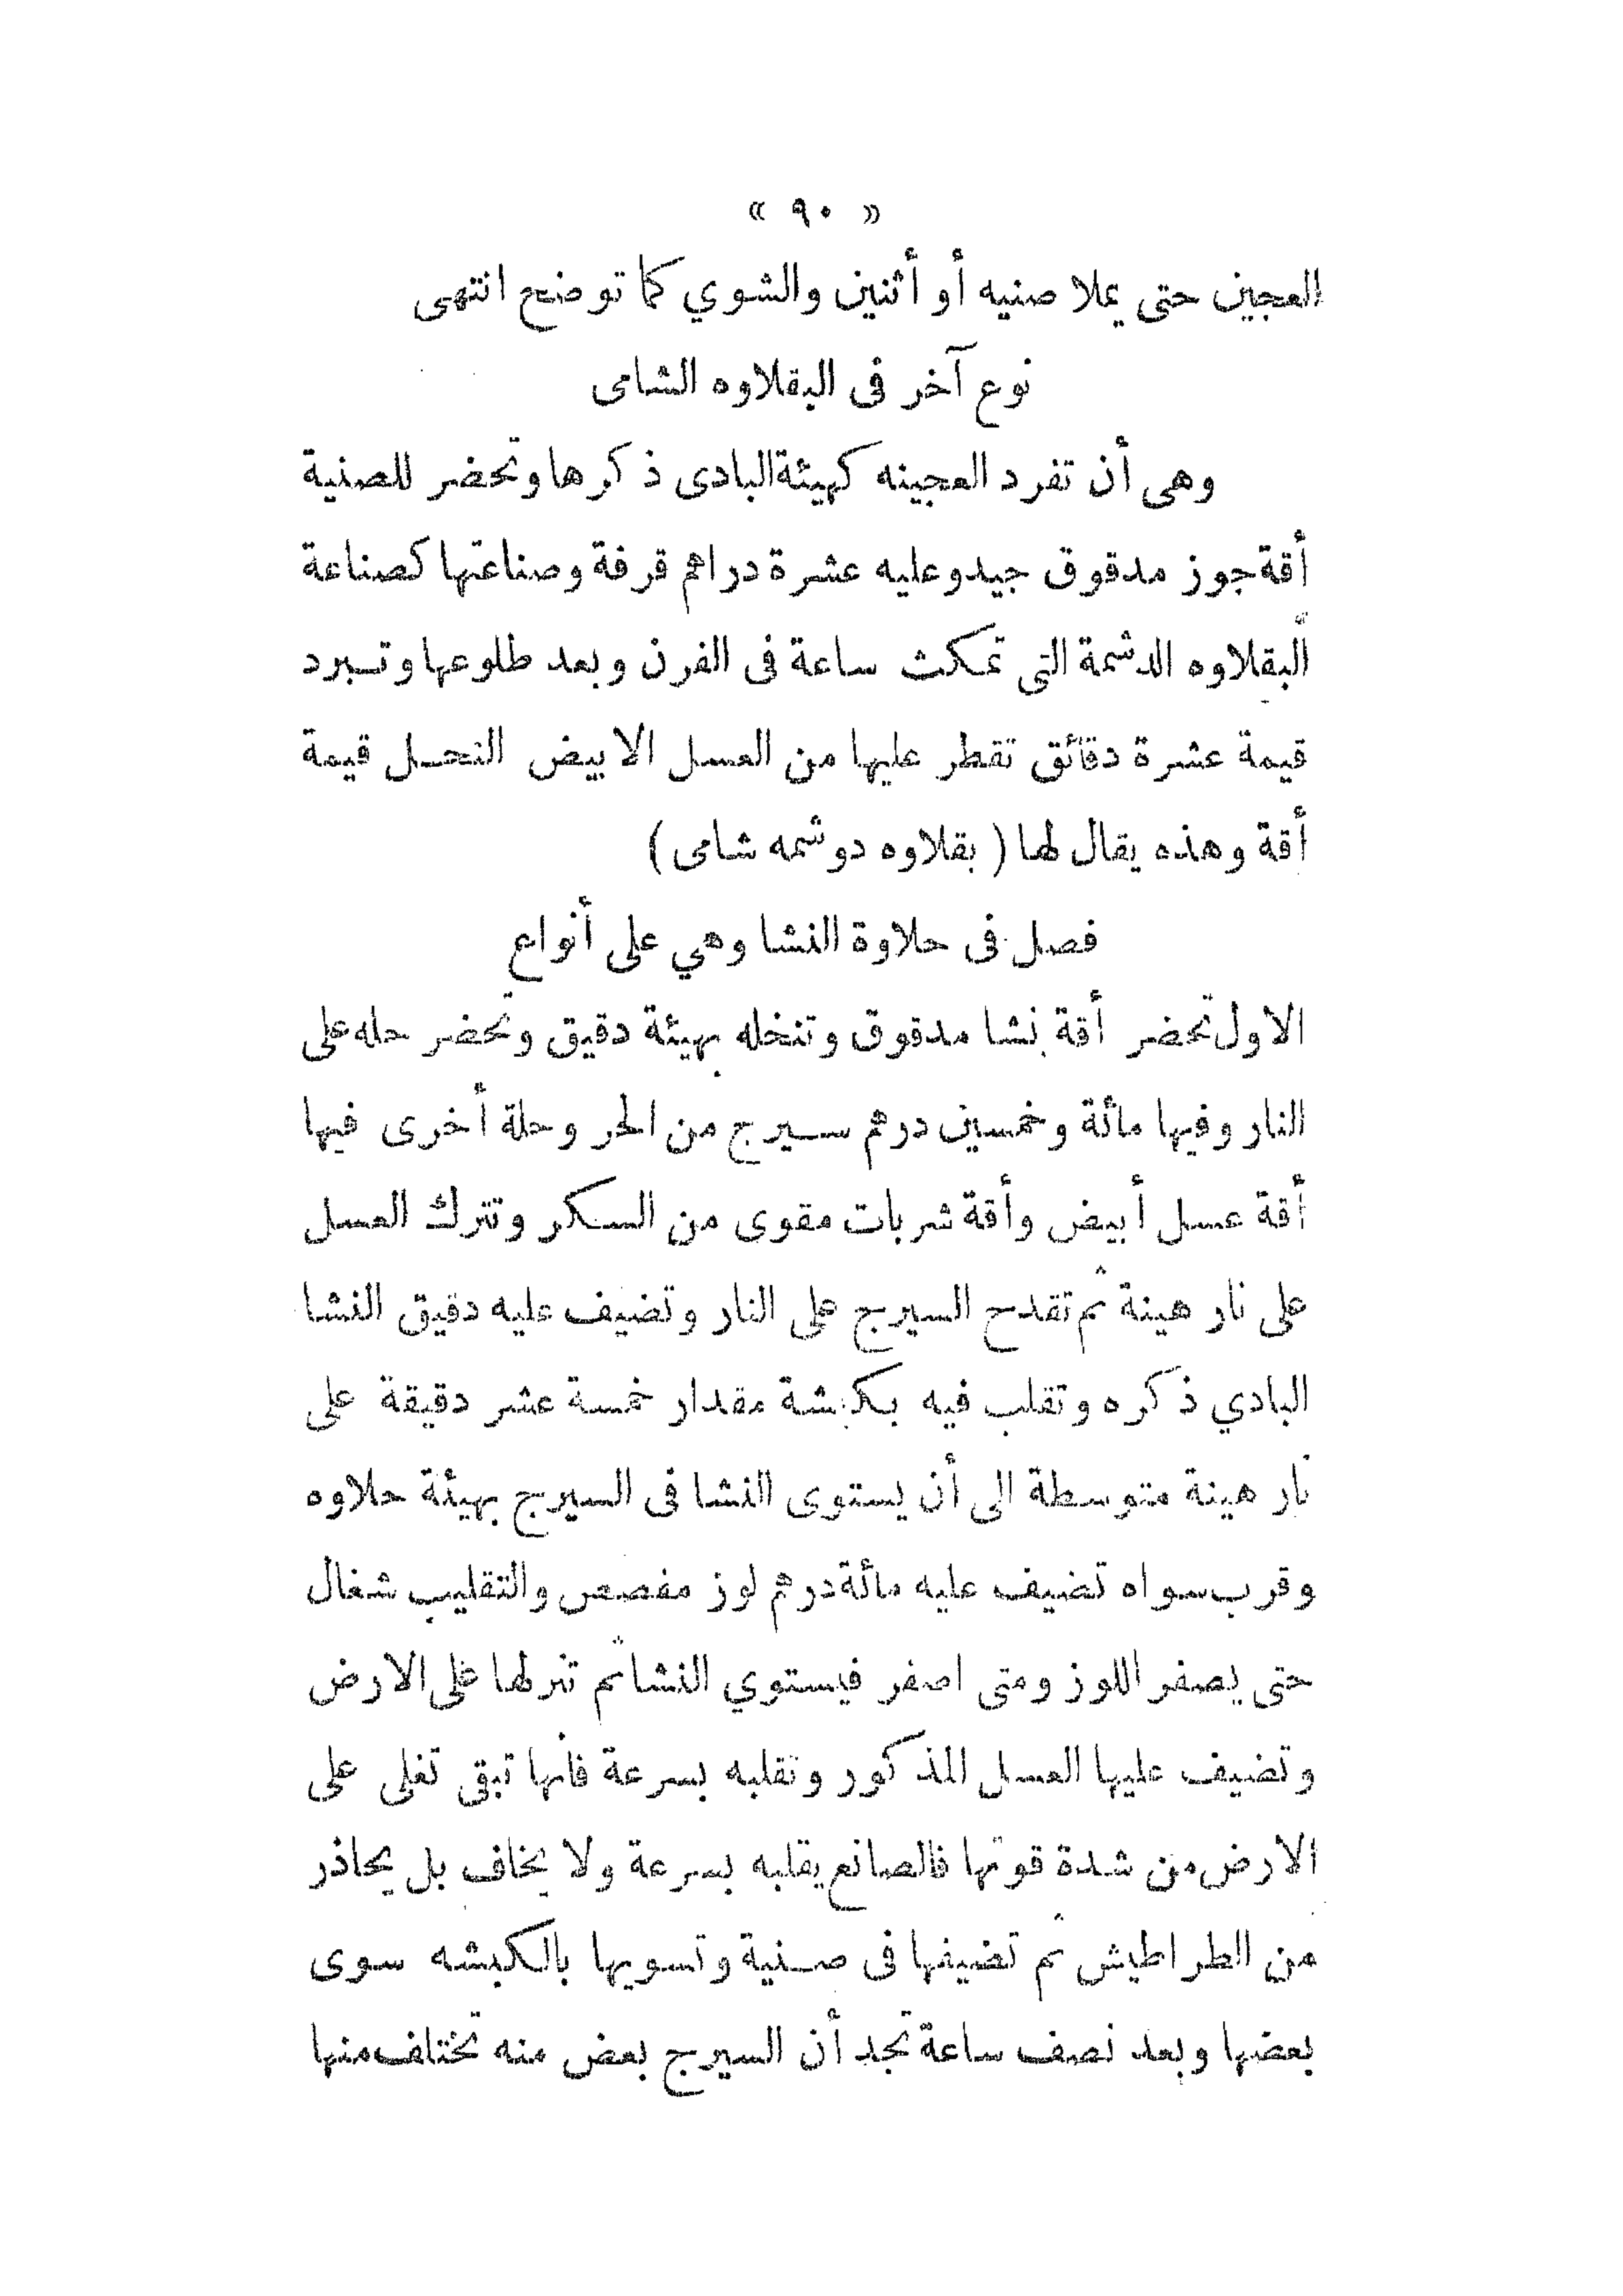 « ٩٠ »
العجين حتى يملا صنيه أو أثنين والشوي كما توضح انتهى
نوع آخر فى البقلاوه الشامى
وهى أن تفرد العجينه كهيئة البادى ذكرها وتحضر للصنية
أقة جوز مدقوق جيد وعليه عشرة دراهم قرفة وصناعتها كصناعة
البقلاوه الدشمة التى تمكث ساعة فى الفرن وبعد طلوعها وتبرد
قيمة عشرة دقائق تقطر عليها من العسل الابيض النحل قيمة
أقة وهذه يقال لها ( بقلاوه دوشمه شامى )
فصل فى حلاوة النشا وهي على أنواع
الاول تحضر أقة نشا مدقوق وتنخله بهيئة دقيق وتحضر حله على
النار وفيها مائة وخمسين درهم سيرج من الحر وحلة أخرى فيها
أقة عسل أبيض وأقة شربات مقوى من السكر وتترك العسل
على نار هينة ثم تقدح السيرج على النار وتضيف عليه دقيق النشا
البادي ذكره وتقلب فيه بكبشة مقدار خمسة عشر دقيقة على
نار هينة متوسطة الى أن يستوى النشا فى السيرج بهيئة حلاوه
وقرب سواه تضيف عليه مائة درهم لوز مفصص والتقليب شغال
حتى يصفر اللوز ومتى اصفر فيستوي النشا ثم تنزلها على الارض
وتضيف عليها العسل المذكور وتقلبه بسرعة فأنها تبقى تغلى على
الارض من شدة قوتها فالصانع يقلبه بسرعة ولا يخاف بل يحاذر
من الطراطيش ثم تضيفها فى صنية وتسويها بالكبشه سوى
بعضها وبعد نصف ساعة تجد أن السيرج بعض منه تختلف منها